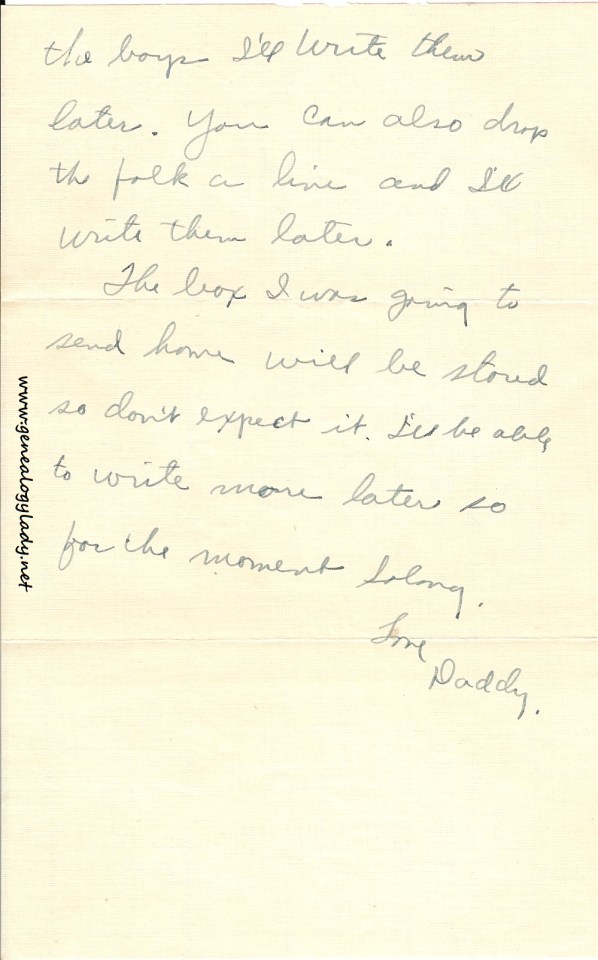 the boys I'll write them
later. You can also drop
the folk a line and I'll
write them later.
The box I was going to
send home will be stored
so don't expect it. I'll be able
to write more later so
for the moment Solong.
Love
Daddy.
www.genealogylady.net